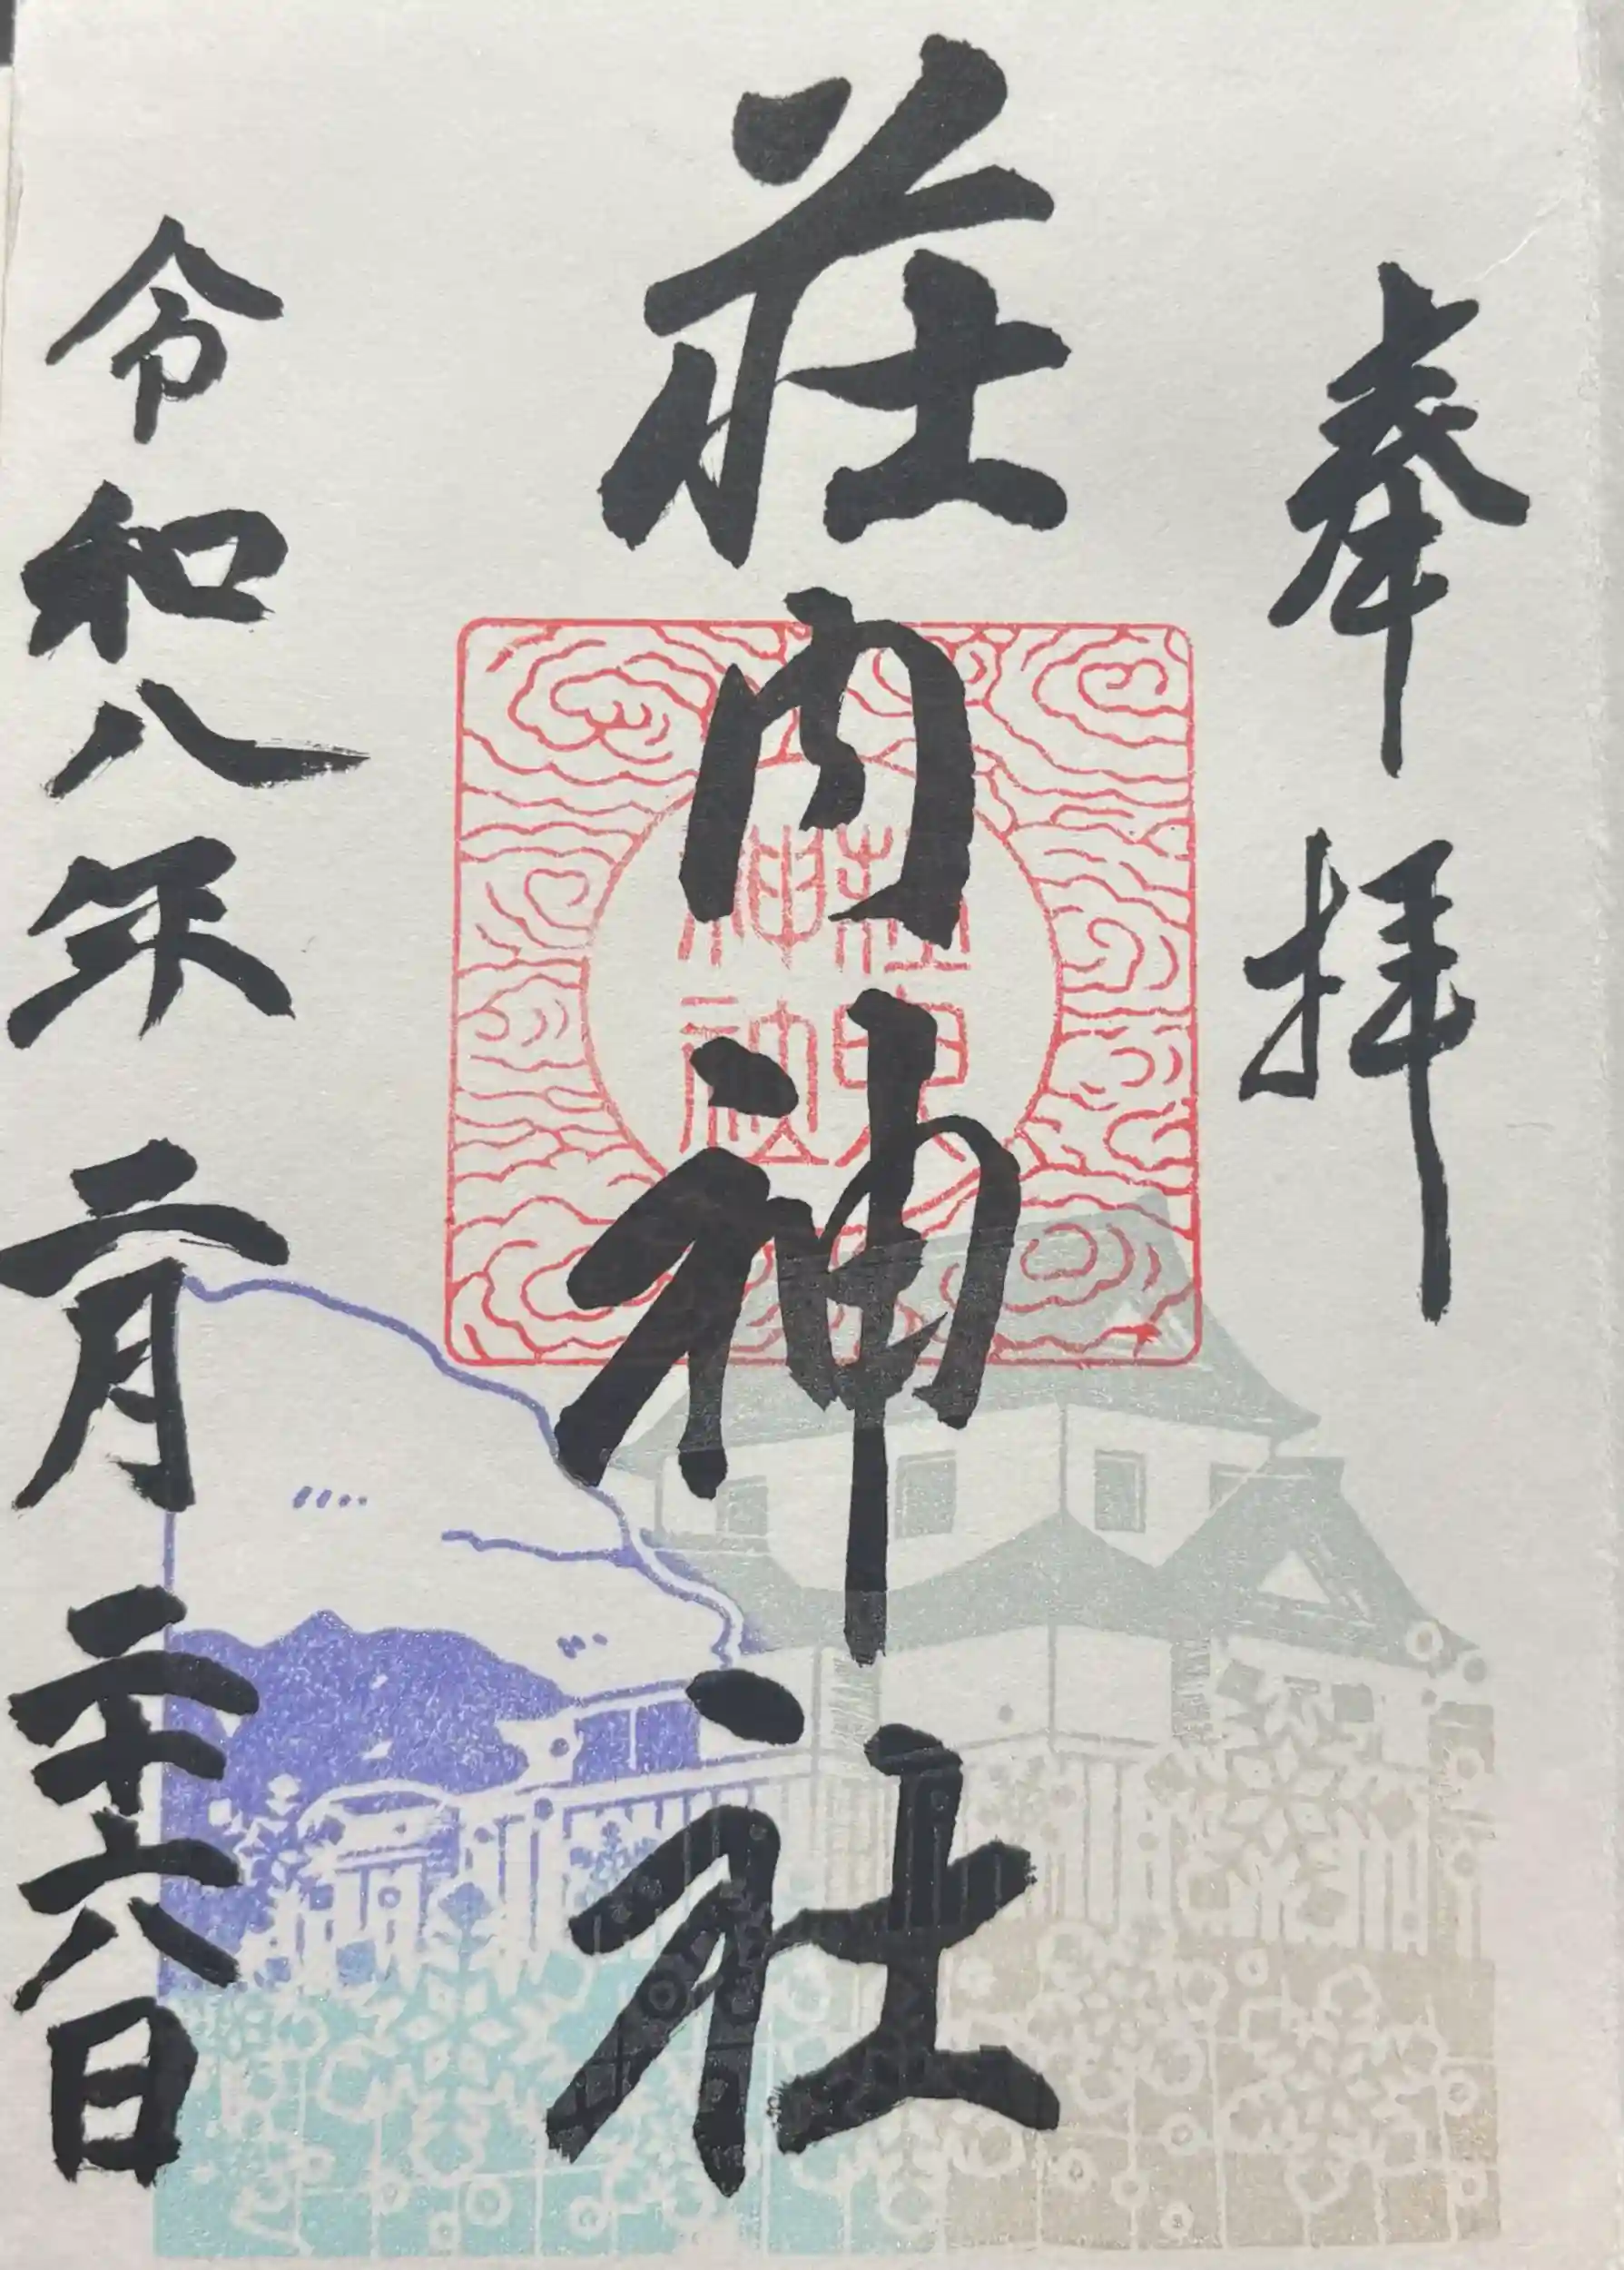 奉拝
荘内神社
荘内神社
令和八年二月二十六日